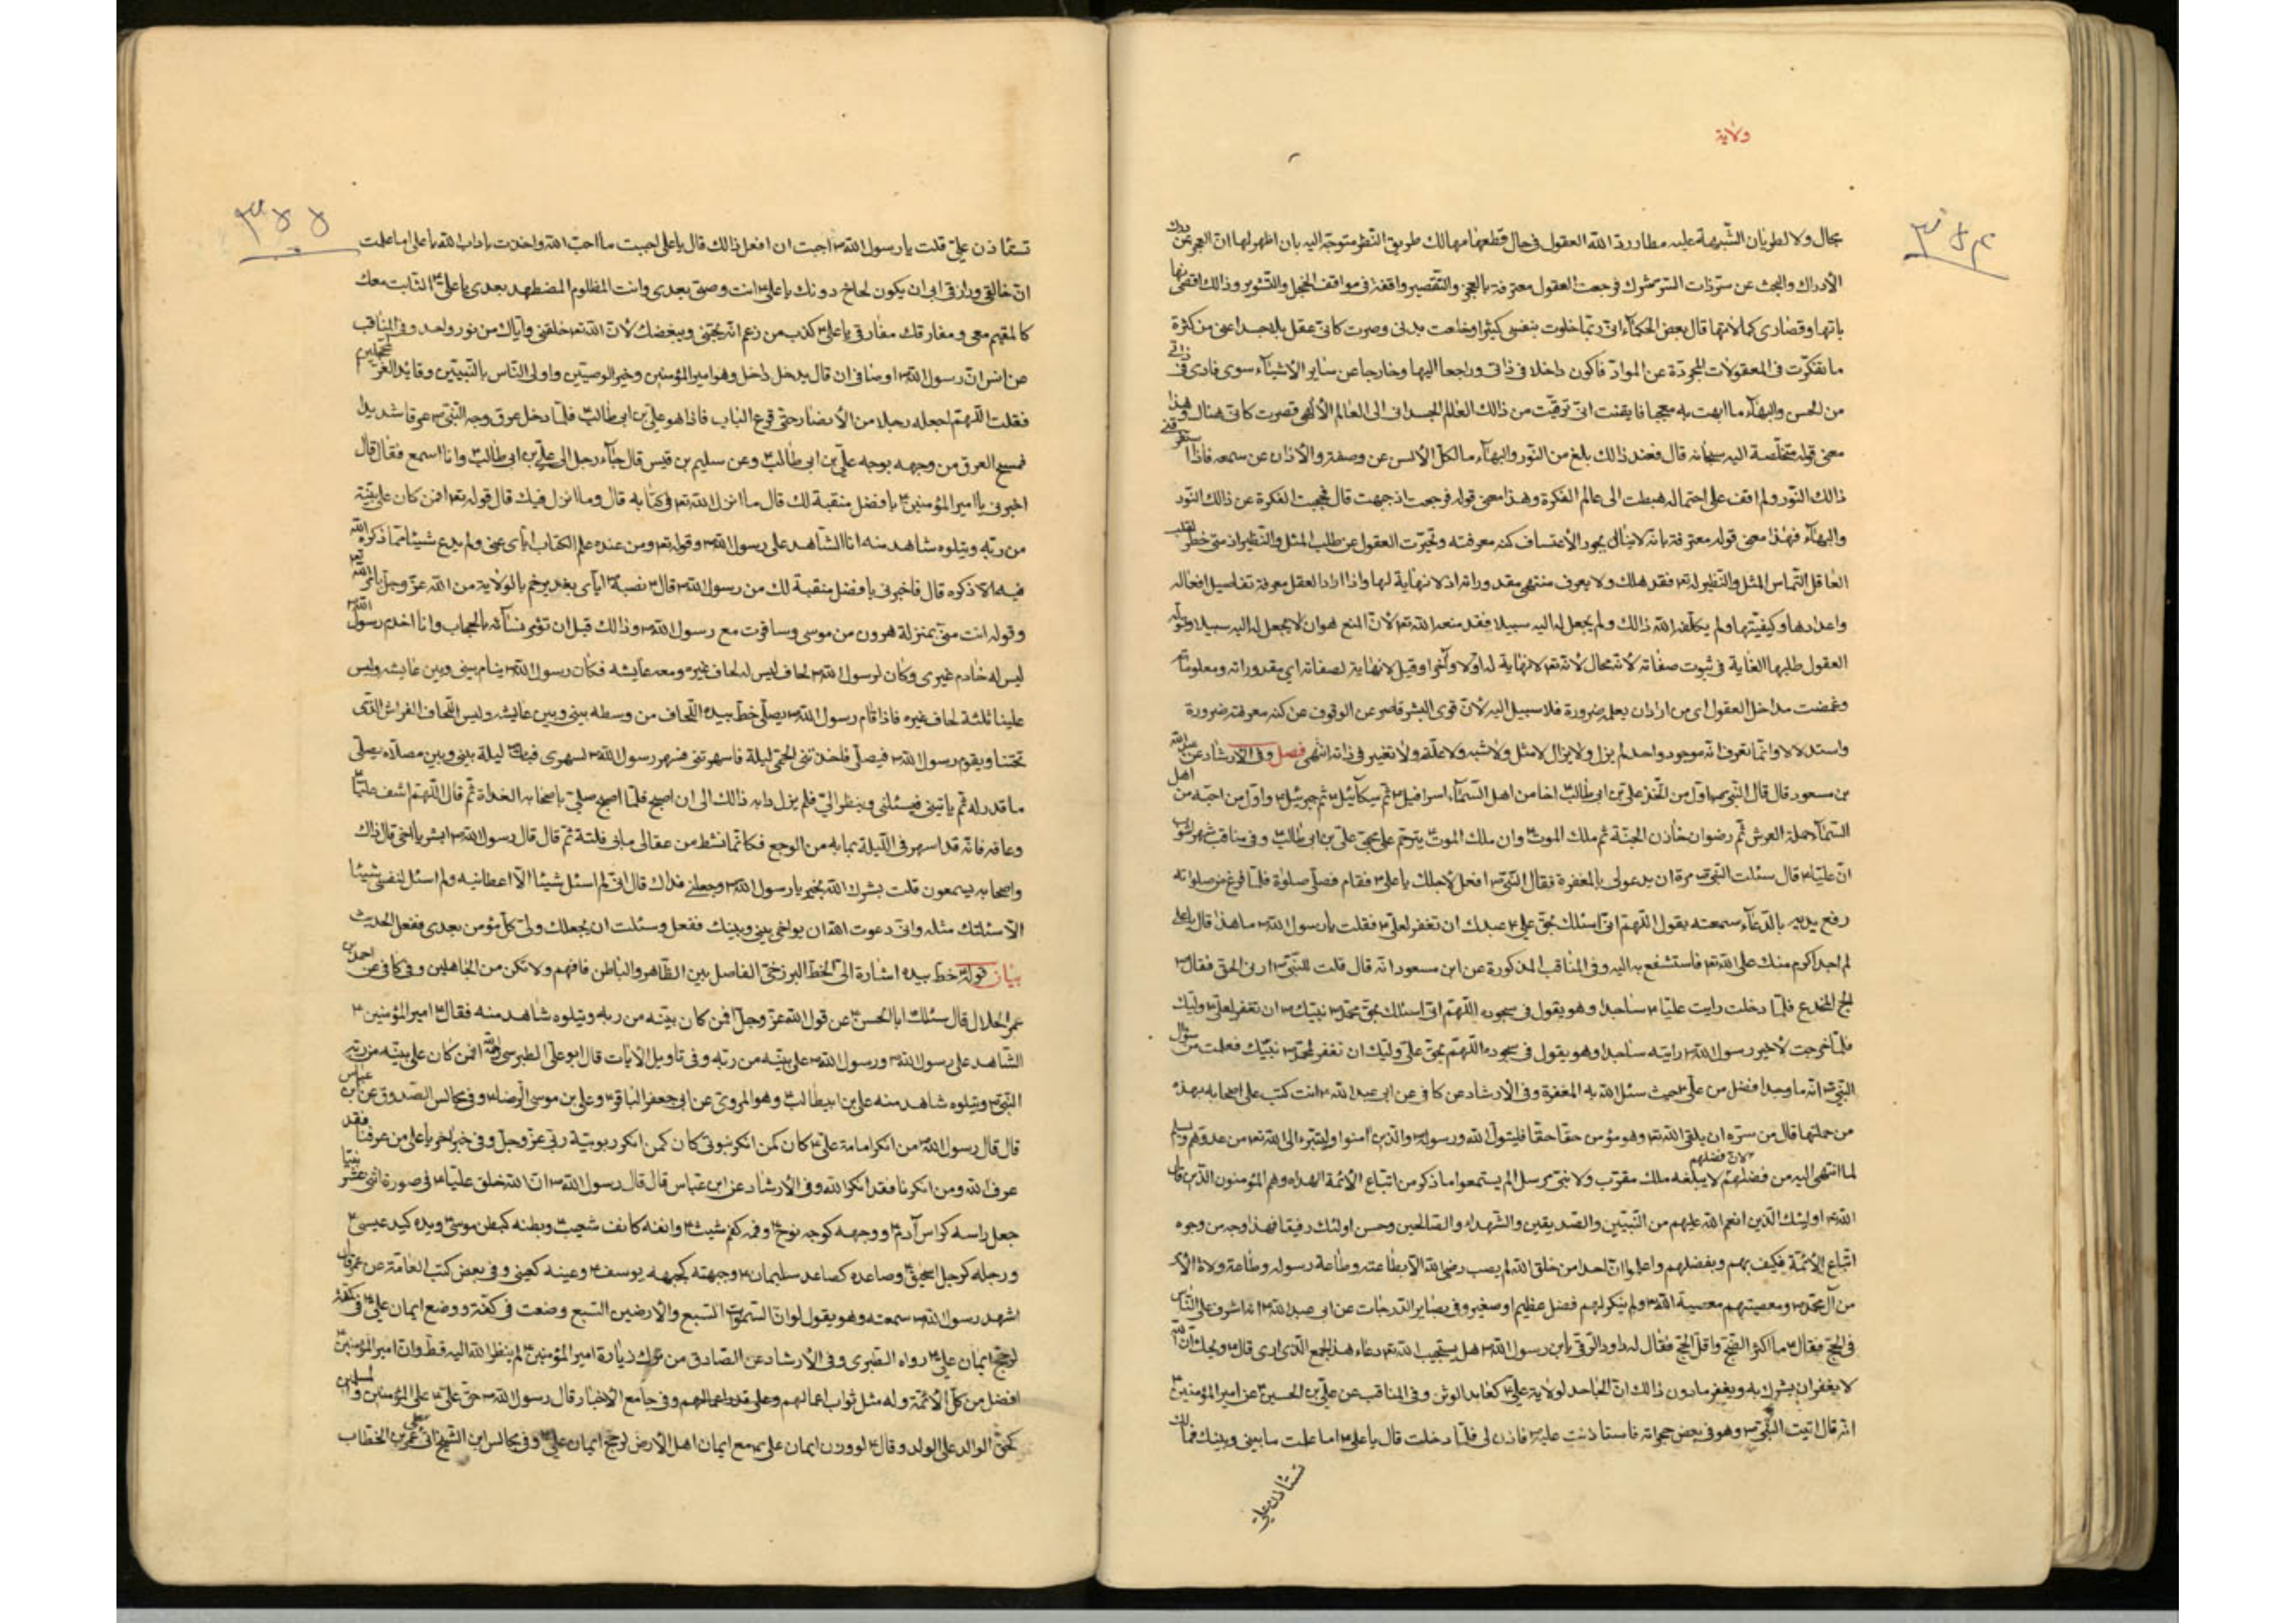 ولاية
مجال ولا لطريان الشبهة عليه مطاردة الله العقول فى حال قطعها مهالك طريق النظر متوجه اليه بان اظهر لها ان العجز عن درك
الأدراك والبحث عن سر ذات السر شرك فرجعت العقول معترفة بالعجز والتقصير واقفة فى مواقف الخجل والتشوير وذالك اقصى
ياتها وقصارى كمالاتها قال بعض الحكماء انى ربما خلوت بنفسى كثيرا وخلعت بدنى وصرت كانى عقل بلا جسد اعنى من كثرة
ما تفكرت فى المعقولات المجردة عن المواد فاكون داخلا فى ذاتى وراجعا اليها وخارجا عن سائر الأشياء سوى فارى فى ذاتى
من الحسن والبهاء ما ابهت به معجبا فايقنت انى ترقيت من ذالك العالم الجسدانى الى العالم الألهى فصرت كانى هناك وهذا
معنى قوله متخلصة اليه سبحانه قال فعند ذالك بلغ من النور والبهاء ما لكل الألسن عن وصفه والأذان عن سمعه فاذا
ذالك النور ولم اقف على احتماله هبطت الى عالم الفكرة وهذا معنى قوله فرجعت اذ جبهت قال فحجبت الفكرة عن ذالك النور
والبهاء فهذا معنى قوله معترفة بانه لا ينال بجور الأعتساف كنه معرفته وتحيرت العقول عن طلب المثل والنظير اذ متى خطر لقلب
العاقل التماس المثل والنظير له تع فقد هلك ولا يعرف منتهى مقدوراته اذ لا نهاية لها واذا اراد العقل معرفة تفاصيل افعاله
واعدادها وكيفيتها ولم يكلفه الله ذالك ولم يجعل له اليه سبيلا فقد منعه الله تع لأن المنع هو ان لا يجعل له اليه سبيلا
العقول طلبها الغاية فى ثبوت صفاته لأنه محال لأنه تع لا نهاية له اولا وآخرا وقيل لا نهاية لصفاته اى مقدوراته ومعلوماته
وغمضت مداخل العقول اى من اراد ان يعلمه ضرورة فلا سبيل اليه لأن قوى البشر قاصر عن الوقوف عن كنه معرفته ضرورة
واستدلالا وانما نعرف انه موجود واحد لم يزل ولا يزال لا مثل ولا شبه ولا علة ولا تغير فى ذاته انتهى فصل وفى الأرشاد عن عبد الله
بن مسعود قال قال النبى ص اول من اتخذ على بن ابى طالب ع اخا من اهل السماء اسرافيل ع ثم ميكائيل ع ثم جبرئيل ع واول من احبه من اهل
السماء حملة العرش ثم رضوان خازن الجنة ثم ملك الموت ع وان ملك الموت ع يترحم على محبى على بن ابى طالب ع وفى مناقب شهر اشوب
ان عليا ع قال سئلت النبى ص مرة ان يدعو لى بالمغفرة فقال النبى ص افعل لأجلك يا على ع فقام فصلى صلوة فلما فرغ من صلواته
رفع يديه بالدعاء سمعته يقول اللهم انى اسئلك بحق على ع عبدك ان تغفر لعلى ع فقلت يا رسول الله ص ما هذا قال يا على
لم اجد اكرم منك على الله تع فاستشفع به اليه وفى المناقب المذكورة عن ابن مسعود انه قال قلت للنبى ص ارنى الحق فقال ص
لج المخدع فلما دخلت رايت عليا ع ساجدا وهو يقول فى سجوده اللهم انى اسئلك بحق محمد ص نبيك ص ان تغفر لعلى ع وليك
فلما خرجت لأخبر رسول الله ص رايته ساجدا وهو يقول فى سجوده اللهم بحق على وليك ان تغفر لمحمد ص نبيك فعلمت من سؤال
النبى ص انه ما وجد افضل من على ع حيث سئل الله به المغفرة وفى الأرشاد عن كافى عن ابى عبد الله ع انه كتب على اصحابه بهذه
من جملتها قال من سره ان يلقى الله تع وهو مؤمن حقا حقا فليتول الله ورسوله والذين آمنوا وليتبرء الى الله تع من عدوهم ويسلم
لما انتهى اليه من فضلهم لأن فضلهم لا يبلغه ملك مقرب ولا نبى مرسل الم يستمعوا ما ذكر من اتباع الأئمة الهداه وهم المؤمنون الذين قال
الله تع اولئك الذين انعم الله عليهم من النبيين والصديقين والشهداء والصالحين وحسن اولئك رفيقا فهذا وجه من وجوه
اتباع الأئمة فكيف بهم وبفضلهم واعلموا ان احدا من خلق الله لم يصب رضى الله الا بطاعته وطاعة رسوله وطاعة ولاة الأمر
من آل محمد ص ومعصيتهم معصية الله تع ولم ينكر لهم فضل عظيم او صغير وفى بصاير الدرجات عن ابى عبد الله ع انه اشرف على الناس
فى الحج فقال ع ما اكثر الضجيج واقل الحجيج فقال له داود الرقى يا بن رسول الله ص هل يستجيب الله تع دعاء هذا الجمع الذى ارى قال ع ويحك ان الله
لا يغفر ان يشرك به ويغفر ما دون ذالك ان الجاحد لولاية على ع كعابد الوثن وفى المناقب عن على بن الحسين ع عن امير المؤمنين ع
انه قال اتيت النبى ص وهو فى بعض حجراته فاستاذنت عليه ص فاذن لى فلما دخلت قال يا على ع اما علمت ما بينى وبينك فمالك
تستاذن على
تستاذن على قلت يا رسول الله ص احببت ان افعل ذالك قال يا على احببت ما احب الله واخذت باداب الله يا على اما علمت
ان خالقى ورازقى ابى ان يكون لى اخ دونك يا على ع انت وصيى بعدى وانت المظلوم المضطهد بعدى يا على ع الثابت معك
كالمقيم معى ومفارقك مفارقى يا على ع كذب من زعم انه يحبنى ويبغضك لأن الله تع خلقنى واياك من نور واحد وفى المناقب
عن انس ان رسول الله ص اوضأنى ان قال يدخل داخل وهو امير المؤمنين وخير الوصيين واولى الناس بالنبيين وقائد الغر المحجلين
فقلت اللهم اجعله رجلا من الأنصار حتى قرع الباب فاذا هو على بن ابى طالب ع فلما دخل عرق وجه النبى ص عرقا شديدا
فمسح العرق من وجهه بوجه على بن ابى طالب ع وعن سليم بن قيس قال جاء رجل الى على بن ابى طالب ع وانا اسمع فقال قال
اخبرنى يا امير المؤمنين ع بافضل منقبة لك قال ما انزل الله تع فى كتابه قال وما انزل فيك قال قوله تع افمن كان على بينة
من ربه ويتلوه شاهد منه انا الشاهد على رسول الله ص وقوله تع ومن عنده علم الكتاب اياى عنى ولم يدع شيئا مما ذكره الله
فيه الا ذكره قال فاخبرنى بافضل منقبة لك من رسول الله ص قال ع نصبه ص اياى بغدير خم بالولاية من الله عز وجل بامر الله تع
وقوله انت منى بمنزلة هرون من موسى وسافرت مع رسول الله ص وذالك قبل ان تؤمر نساؤه بالحجاب وانا اخدم رسول الله ص
ليس له خادم غيرى وكان لرسول الله ص لحاف ليس له لحاف غيره ومعه عايشه فكان رسول الله ص ينام بينى وبين عايشه وليس
علينا ثلثة لحاف غيره فاذا قام رسول الله ص يصلى خط بيده اللحاف من وسطه بينى وبين عايشه وليس اللحاف الفراش الذى
تحتنا ويقوم رسول الله ص فيصلى فاخذتنى الحمى ليلة فاسهرتنى فسهر رسول الله ص لسهرى فبات ليلة بينى وبين مصلاه يصلى
ما قدر له ثم ياتينى فيسئلنى وينظر الى فلم يزل دابه ذالك الى ان اصبح فلما اصبح صلى باصحابه الغداة ثم قال اللهم اشف عليا ع
وعافه فانه قد اسهرنى الليلة بما به من الوجع فكانما نشط من عقال ما بى فلتة ثم قال قال رسول الله ص ابشر يا اخى قال ذاك
واصحابه يسمعون قلت بشرك الله بخير يا رسول الله ص وجعلنى فداك قال انى لم اسئل شيئا الا اعطانيه ولم اسئل لنفسى شيئا
الا سئلتك مثله وانى دعوت الله ان يواخى بينى وبينك ففعل وسئلت ان يجعلك ولى كل مؤمن بعدى ففعل الحديث
بيان قوله خط بيده اشارة الى الخط البرزخى الفاصل بين الظاهر والباطن فافهم ولا تكن من الجاهلين وفى كافى عن احمد بن
عمر الحلال قال سئلت ابا الحسن ع عن قول الله عز وجل افمن كان بينه من ربه ويتلوه شاهد منه فقال ع امير المؤمنين ع
الشاهد على رسول الله ص ورسول الله ص على بينه من ربه وفى تاويل الأيات قال ابو على الطبرسى ره افمن كان على بينه من ربه
النبى ص ويتلوه شاهد منه على بن ابيطالب ع وهو المروى عن ابى جعفر الباقر ع وعلى بن موسى الرضا ع وفى مجالس الصدوق عن ابن عباس
قال قال رسول الله ص من انكر امامة على ع كان كمن انكر نبوتى كان كمن انكر ربوبية ربى عز وجل وفى خبر اخر يا على من عرفنا فقد
عرف الله ومن انكرنا فقد انكر الله وفى الأرشاد عن ابن عباس قال قال رسول الله ص ان الله خلق عليا ع فى صورة اثنى عشر نبيا
جعل راسه كراس آدم ع ووجهه كوجه نوح ع وفمه كفم شيث ع وانفه كانف شعيب ع وبطنه كبطن موسى ع ويده كيد عيسى ع
ورجله كرجل اسحق ع وساعده كساعد سليمان ع وجبهته كجبهة يوسف ع وعينه كعينى وفى بعض كتب العامة عن عمر قال
اشهد رسول الله ص سمعته وهو يقول لو ان السموات السبع والأرضين السبع وضعت فى كفة ووضع ايمان على ع فى كفة
لرجح ايمان على ع رواه الطبرى وفى الأرشاد عن الصادق من ترك زيارة امير المؤمنين ع لم ينظر الله اليه قط وان امير المؤمنين ع
افضل من كل الأئمة وله مثل ثواب اعمالهم وعلى قدر اعمالهم وفى جامع الأخبار قال رسول الله ص حق على ع على المؤمنين والمسلمين
كحق الوالد على الولد وقال ع لو وزن ايمان على ع مع ايمان اهل الأرض لرجح ايمان على ع وفى مجالس ابن الشيخ عمر بن الخطاب